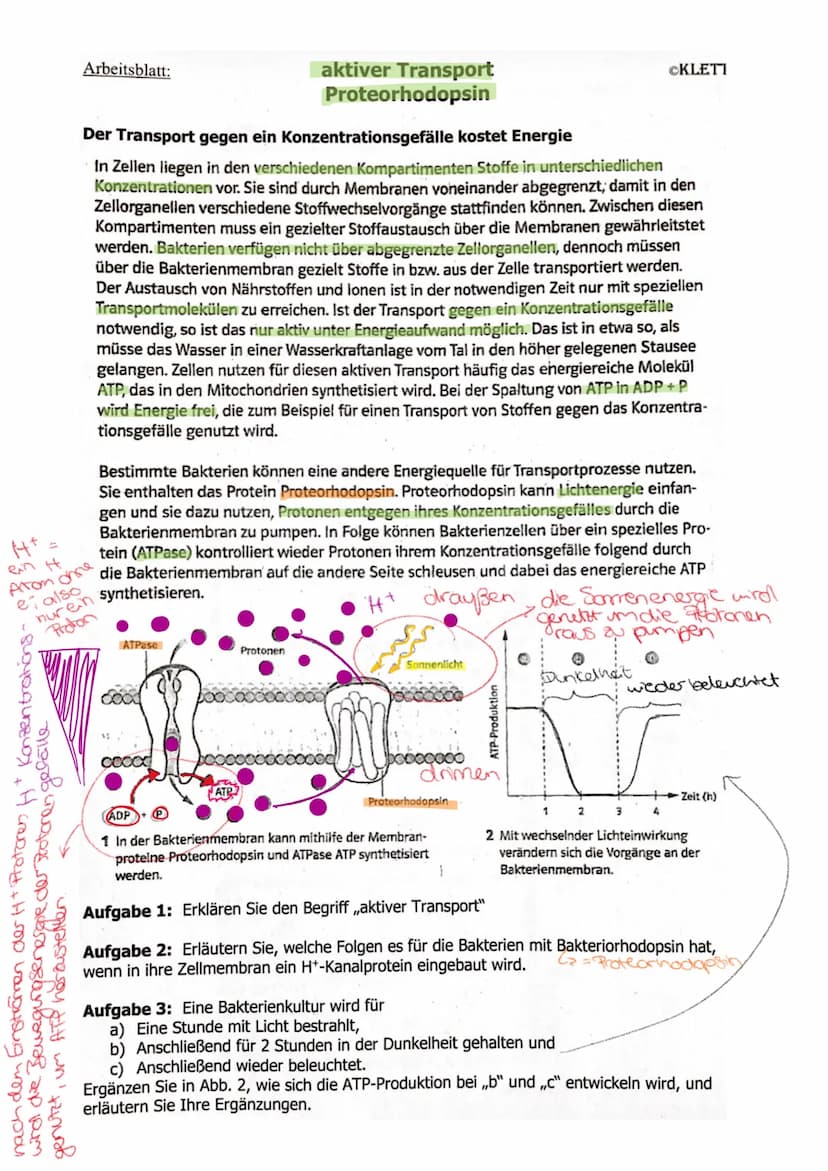 Arbeitsblatt:
aktiver Transport
Proteorhodopsin
©KLETT
Der Transport gegen ein Konzentrationsgefälle kostet Energie
In Zellen liegen in den verschiedenen Kompartimenten Stoffe in unterschiedlichen
Konzentrationen vor. Sie sind durch Membranen voneinander abgegrenzt, damit in den
Zellorganellen verschiedene Stoffwechselvorgänge stattfinden können. Zwischen diesen
Kompartimenten muss ein gezielter Stoffaustausch über die Membranen gewährleitstet
werden. Bakterien verfügen nicht über abgegrenzte Zellorganellen, dennoch müssen
über die Bakterienmembran gezielt Stoffe in bzw. aus der Zelle transportiert werden.
Der Austausch von Nährstoffen und Ionen ist in der notwendigen Zeit nur mit speziellen
Transportmolekülen zu erreichen. Ist der Transport gegen ein Konzentrationsgefälle
notwendig, so ist das nur aktiv unter Energieaufwand möglich. Das ist in etwa so, als
müsse das Wasser in einer Wasserkraftanlage vom Tal in den höher gelegenen Stausee
gelangen. Zellen nutzen für diesen aktiven Transport häufig das energiereiche Molekül
ATP, das in den Mitochondrien synthetisiert wird. Bei der Spaltung von ATP in ADP + P
wird Energie frei, die zum Beispiel für einen Transport von Stoffen gegen das Konzentra-
tionsgefälle genutzt wird.
Bestimmte Bakterien können eine andere Energiequelle für Transportprozesse nutzen.
Sie enthalten das Protein Proteorhodopsin. Proteorhodopsin kann Lichtenergie einfan-
gen und sie dazu nutzen, Protonen entgegen ihres Konzentrationsgefälles durch die
Bakterienmembran zu pumpen. In Folge können Bakterienzellen über ein spezielles Pro-
tein (ATPase) kontrolliert wieder Protonen ihrem Konzentrationsgefälle folgend durch
die Bakterienmembran auf die andere Seite schleusen und dabei das energiereiche ATP
synthetisieren.
H⁺ =
ein H
Atom ohne
e⁻, also
nur ein
Proton
H⁺ Konzentrations-
gefälle
nach dem Einströmen der H⁺ Protonen
wird die Bewegungsenergie der Protonen
genutzt, um ATP herzustellen
H⁺
draußen
die Sonnenenergie wird
genutzt um die Protonen
raus zu pumpen
ATPase
Protonen
Sonnenlicht
drinnen
ADP + P
ATP
Proteorhodopsin
ATP-Produktion
Dunkelheit
wieder beleuchtet
Zeit (h)
1 2 3 4
1 In der Bakterienmembran kann mithilfe der Membran-
proteine Proteorhodopsin und ATPase ATP synthetisiert
werden.
2 Mit wechselnder Lichteinwirkung
verändern sich die Vorgänge an der
Bakterienmembran.
Aufgabe 1: Erklären Sie den Begriff „aktiver Transport"
Aufgabe 2: Erläutern Sie, welche Folgen es für die Bakterien mit Bakteriorhodopsin hat,
wenn in ihre Zellmembran ein H⁺-Kanalprotein eingebaut wird.
↳ = Proteorhodopsin
Aufgabe 3: Eine Bakterienkultur wird für
a) Eine Stunde mit Licht bestrahlt,
b) Anschließend für 2 Stunden in der Dunkelheit gehalten und
c) Anschließend wieder beleuchtet.
Ergänzen Sie in Abb. 2, wie sich die ATP-Produktion bei „b" und „c" entwickeln wird, und
erläutern Sie Ihre Ergänzungen.